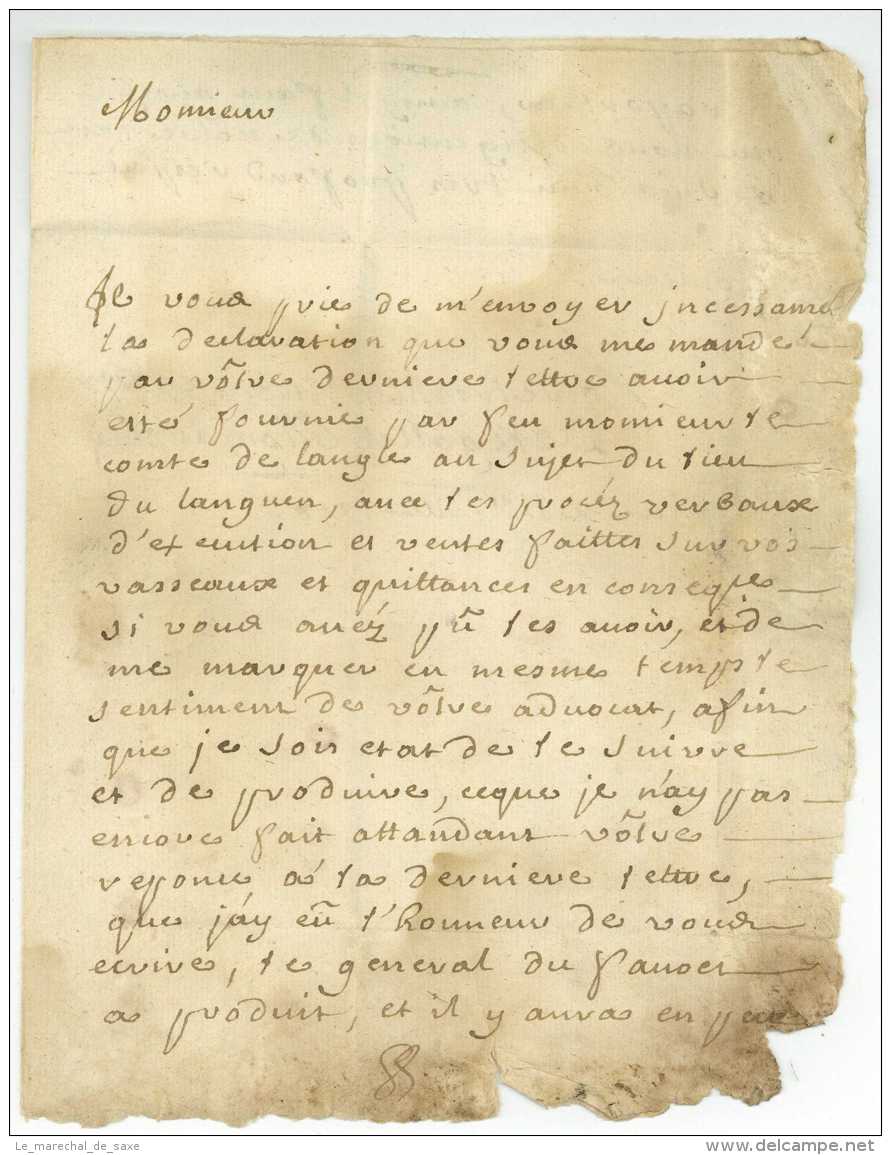 Monsieur
Je vous prie de m'envoyer jncessamt
la declaration que vous me mandé
par vôtre derniere lettre avoir
esté fournie par feu monsieur le
comte de langle au sujet du lieu
du languen, avec les procéz verbaux
d'execution et ventes faittes sur vos
vasseaux et quittances en conseqce
si vous avéz pû les avoir, et de
me marquer en mesme temps le
sentiment de vôtre advocat, afin
que je sois etat de le suivre
et de produire, ceque je n'ay pas
encore fait attandant vôtre
reponce a la derniere lettre,
que j'ay eû l'honneur de vous
ecrire, le general du faouet
a produit, et il y aura en peu
Le_marechal_de_saxe
delcampe.net